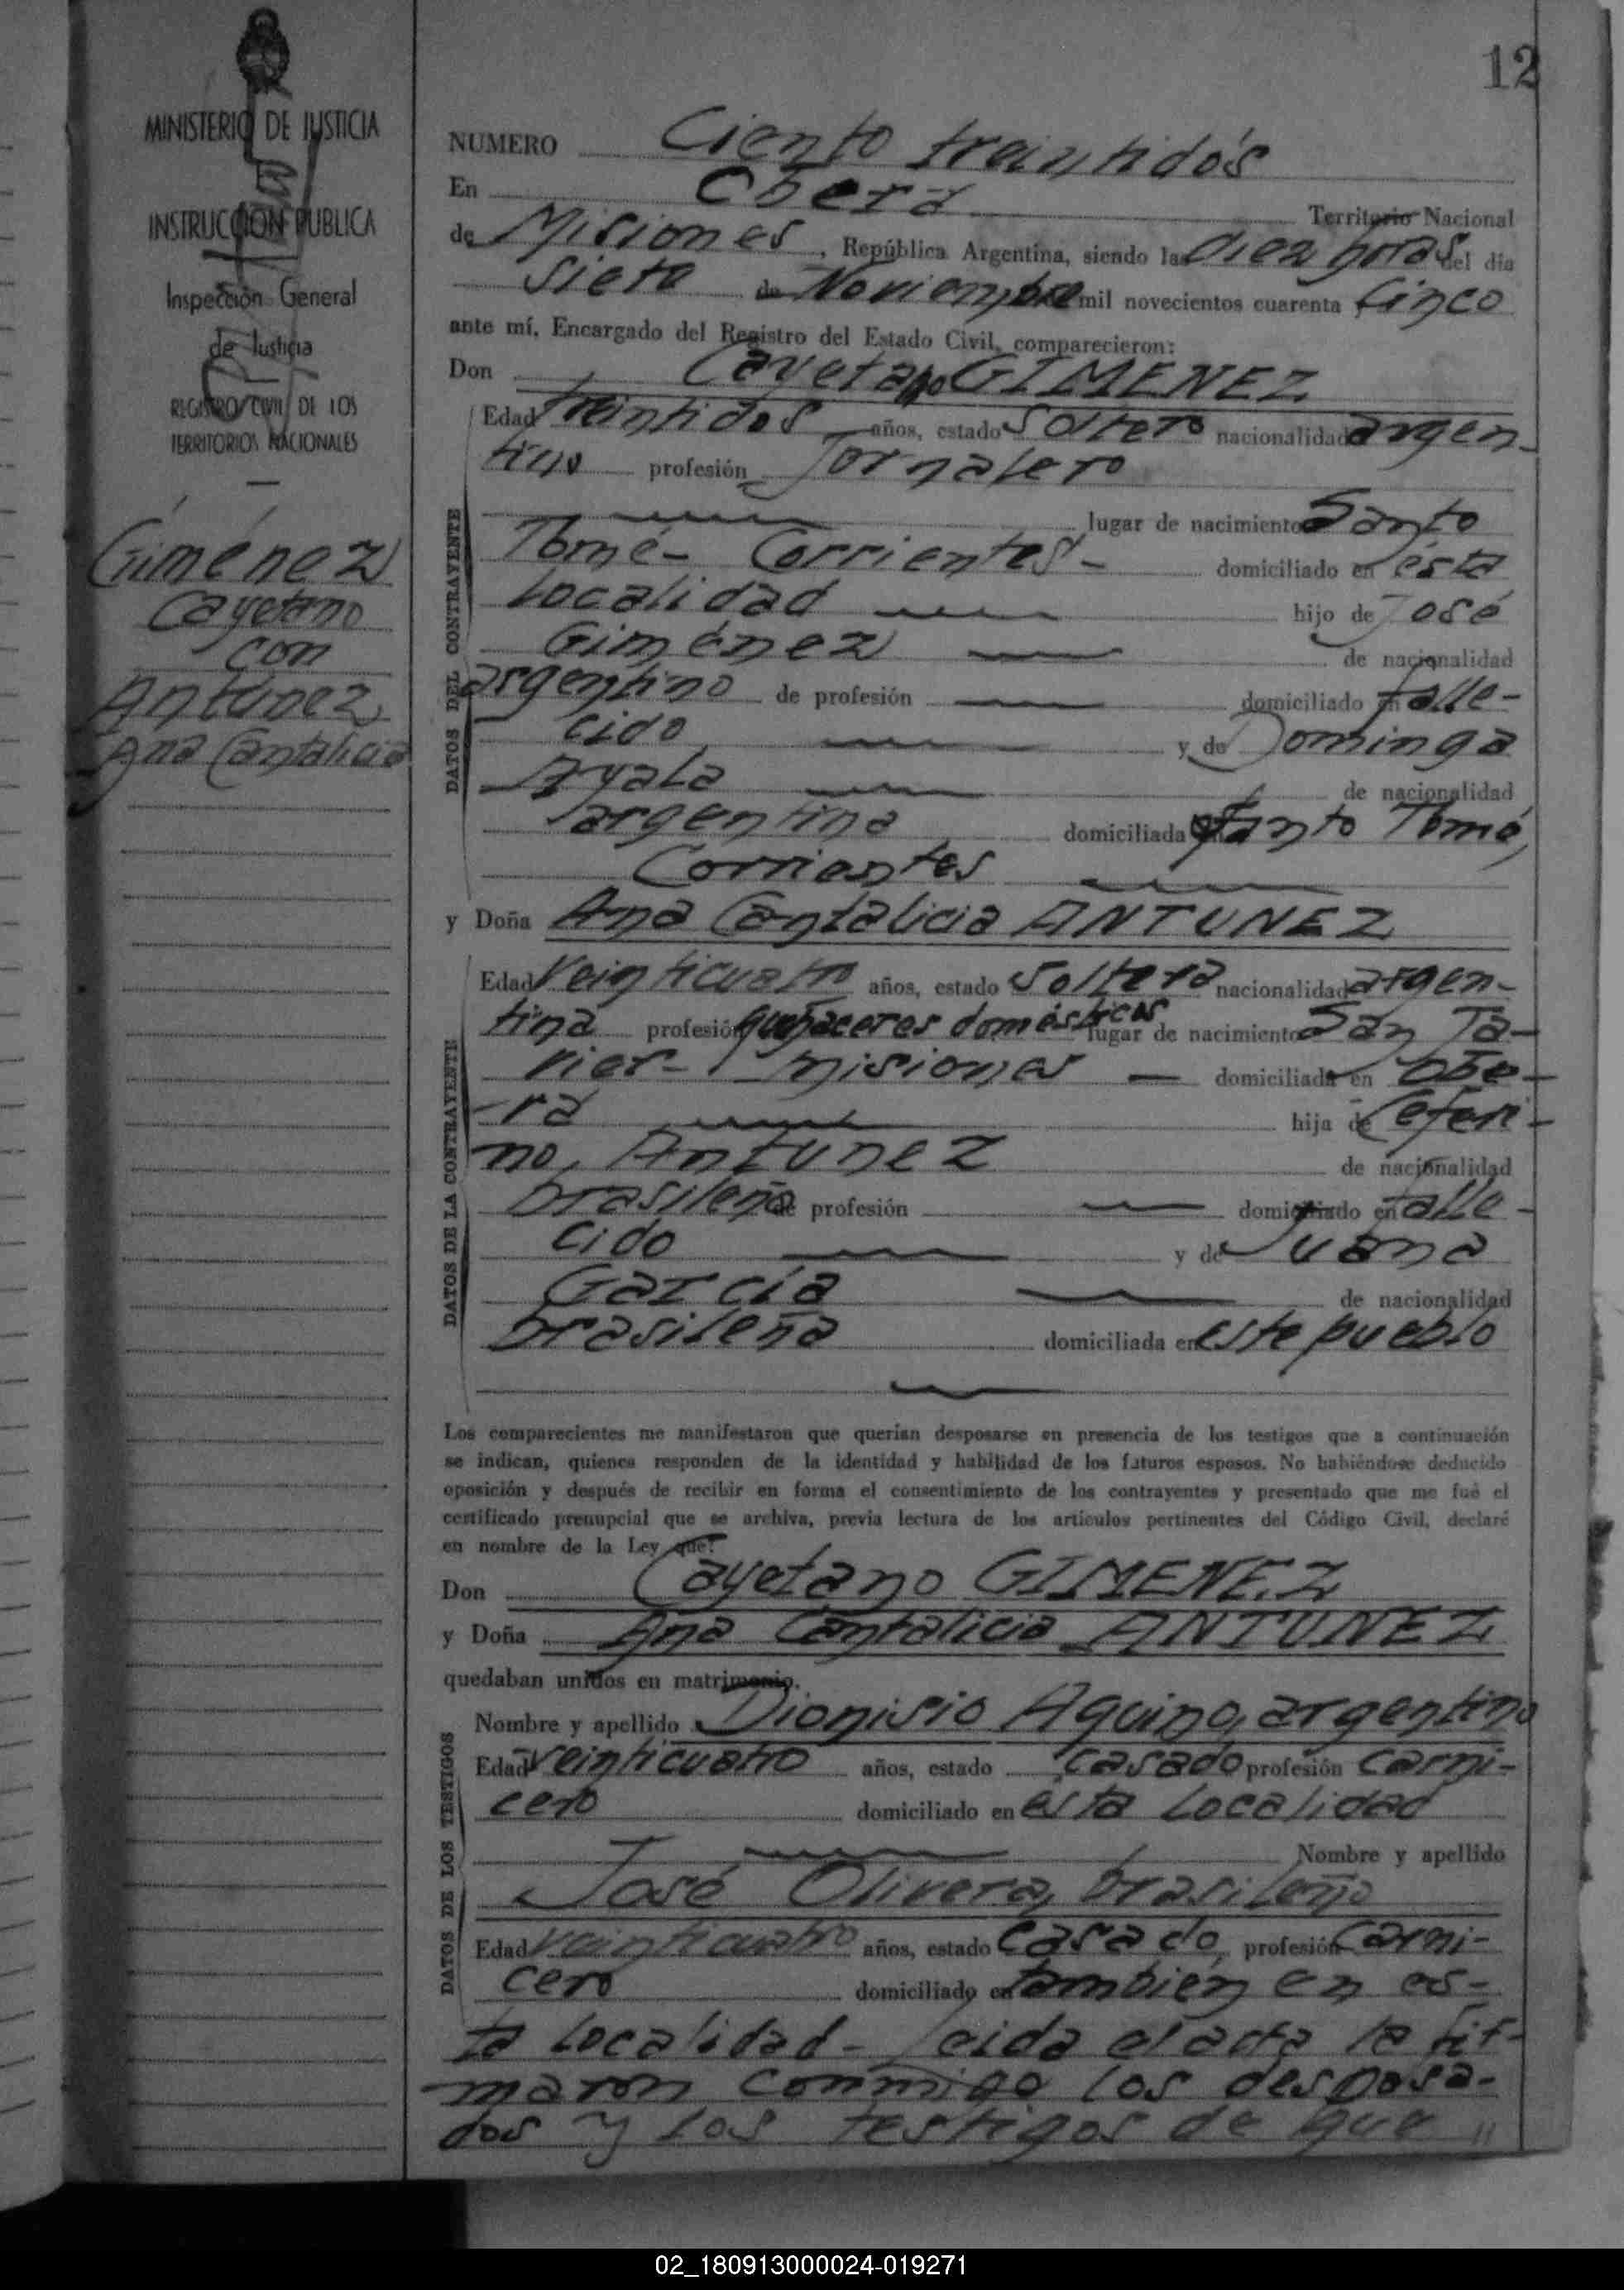 12
MINISTERIO DE JUSTICIA
INSTRUCCION PUBLICA
Inspección General
de Justicia
REGISTRO CIVIL DE LOS
TERRITORIOS NACIONALES
Giménez
Cayetano
con
Antúnez
Ana Cantalicia
NUMERO Ciento treintidós
En Oberá Territorio Nacional
de Misiones, República Argentina, siendo las diez horas del día
siete de Noviembre de mil novecientos cuarenta cinco
ante mí, Encargado del Registro del Estado Civil, comparecieron:
Don Cayetano GIMENEZ
DATOS DEL CONTRAYENTE
Edad treintidos años, estado soltero nacionalidad argen-
tino profesión Jornalero
lugar de nacimiento Santo
Tomé- Corrientes- domiciliado en ésta
localidad hijo de José
Giménez de nacionalidad
argentino de profesión domiciliado en falle-
cido y de Dominga
Ayala de nacionalidad
argentina domiciliada en Santo Tomé,
Corrientes
y Doña Ana Cantalicia ANTUNEZ
DATOS DE LA CONTRAYENTE
Edad veinticuatro años, estado soltera nacionalidad argen-
tina profesión quehaceres domésticos lugar de nacimiento San Ja-
vier- Misiones domiciliada en Obe-
-rá hija de Ceferi-
no, Antunez de nacionalidad
brasileño de profesión domiciliado en falle-
cido y de Juana
García de nacionalidad
brasileña domiciliada en este pueblo
Los comparecientes me manifestaron que querían desposarse en presencia de los testigos que a continuación
se indican, quienes responden de la identidad y habilidad de los futuros esposos. No habiéndose deducido
oposición y después de recibir en forma el consentimiento de los contrayentes y presentado que me fué el
certificado prenupcial que se archiva, previa lectura de los artículos pertinentes del Código Civil, declaré
en nombre de la Ley que:
Don Cayetano GIMENEZ
y Doña Ana Cantalicia ANTUNEZ
quedaban unidos en matrimonio.
DATOS DE LOS TESTIGOS
Nombre y apellido Dionisio Aquino, argentino
Edad veinticuatro años, estado casado profesión carni-
cero domiciliado en esta localidad
Nombre y apellido
José Olivera, brasileño
Edad veinticuatro años, estado casado, profesión carni-
cero domiciliado en también en es-
ta localidad- Leida el acta la fir-
maron conmigo los desposa-
dos y los testigos de que "
02_180913000024-019271